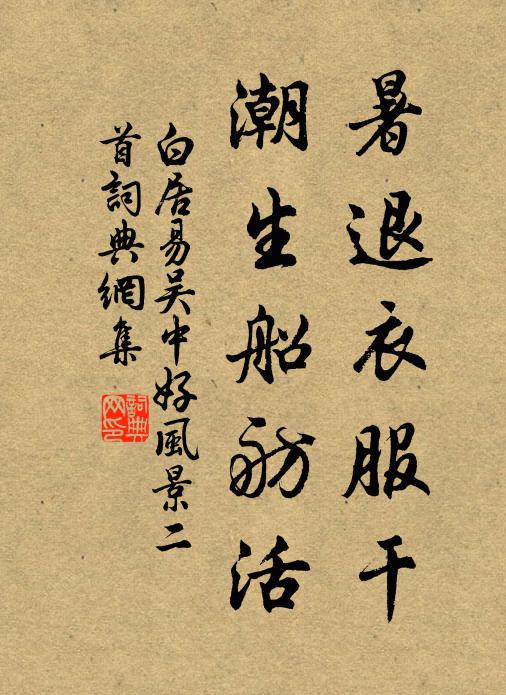 暑退衣服干
潮生船舫活
白居易吴中好風景二
首詞典網集
詞典
网印